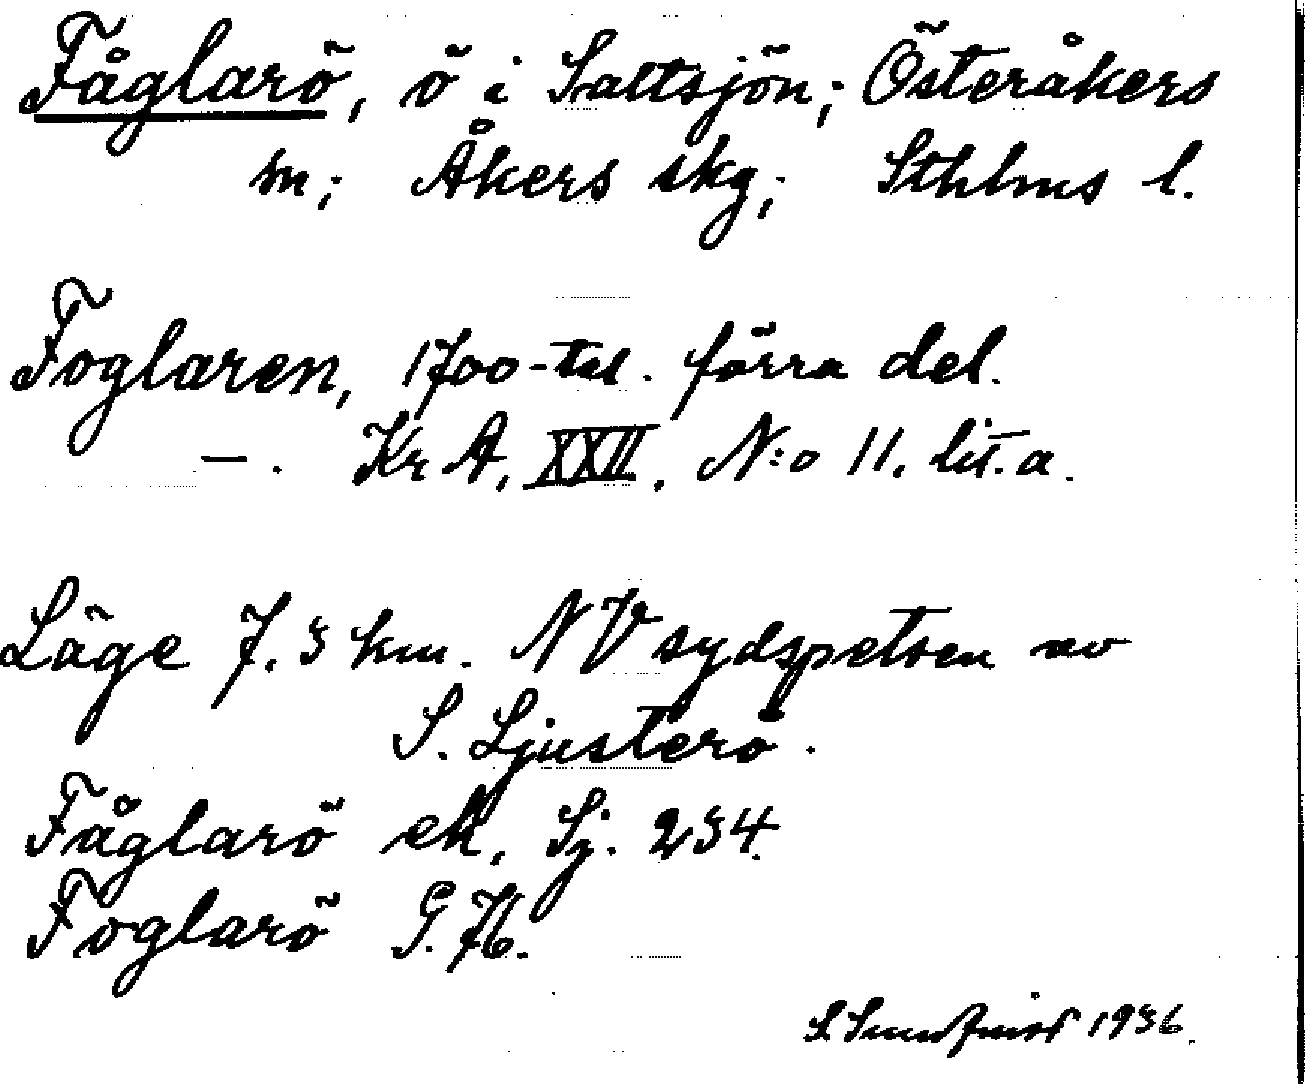 Fåglarö, ö i Saltsjön; Österåkers
sn; Åkers skg; Sthlms l.
Foglaren, 1700-tal. förra del.
— . Kr A, XXII. N:o 11. lit. a.
Läge 7.5 km. NV sydspetsen av
S. Ljusterö.
Fåglarö ek, Sj. 234.
Foglarö G. 76.
S. Sundqvist 1936.